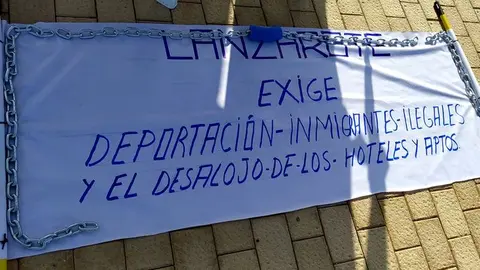 LANZAROTE
EXIGE
DEPORTACIÓN-INMIGRANTES-ILEGALES
Y EL DESALOJO-DE-LOS-HOTELES Y APTOS.